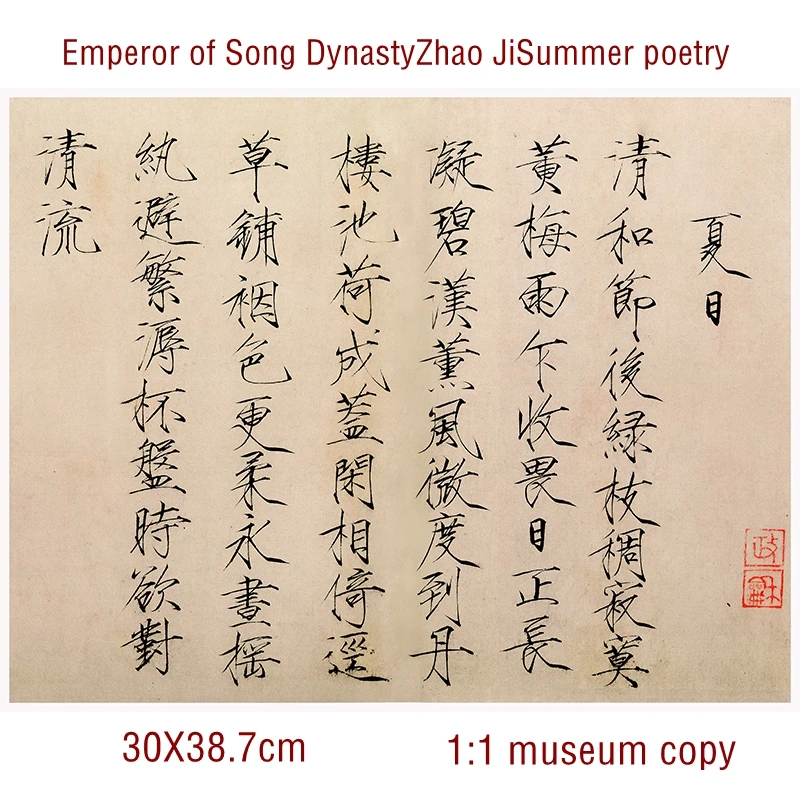 Emperor of Song DynastyZhao JiSummer poetry
夏日
清和節後緑枝稠寂寞
黄梅雨乍收畏日正長
凝碧漢薫風微度到丹
樓池荷成蓋閑相倚逕
草鋪裀色更柔永晝搖
紈避繁溽杯盤時欲對
清流
政
龢
30X38.7cm
1:1 museum copy